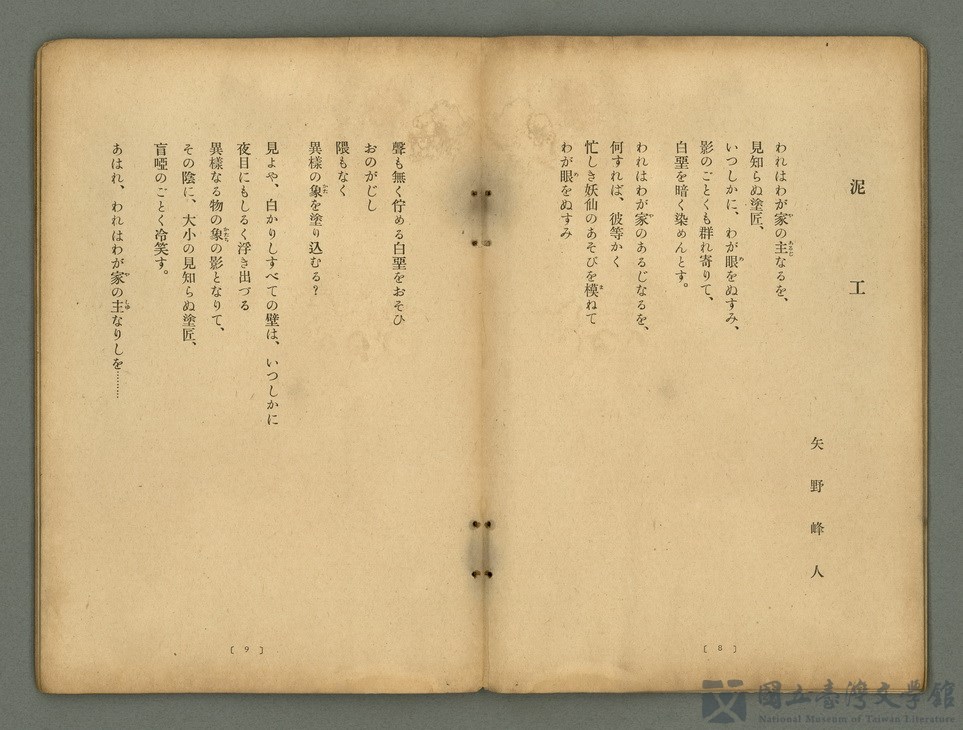 泥工
矢野峰人
われはわが家の主なるを、
見知らぬ塗匠、
いつしかに、わが眼をぬすみ、
影のごとくも群れ寄りて、
白堊を暗く染めんとす。
われはわが家のあるじなるを、
何すれば、彼等かく
忙しき妖仙のあそびを模ねて
わが眼をぬすみ
[8]
聲も無く佇める白堊をおそひ
おのがじし
隈もなく
異樣の象を塗り込むる?
見よや、白かりしすべての壁は、いつしかに
夜目にもしるく浮き出づる
異樣なる物の象の影となりて、
その陰に、大小の見知らぬ塗匠、
盲啞のごとく冷笑す。
あはれ、われはわが家の主なりしを………
[9]
國立臺灣文學館
National Museum of Taiwan Literature